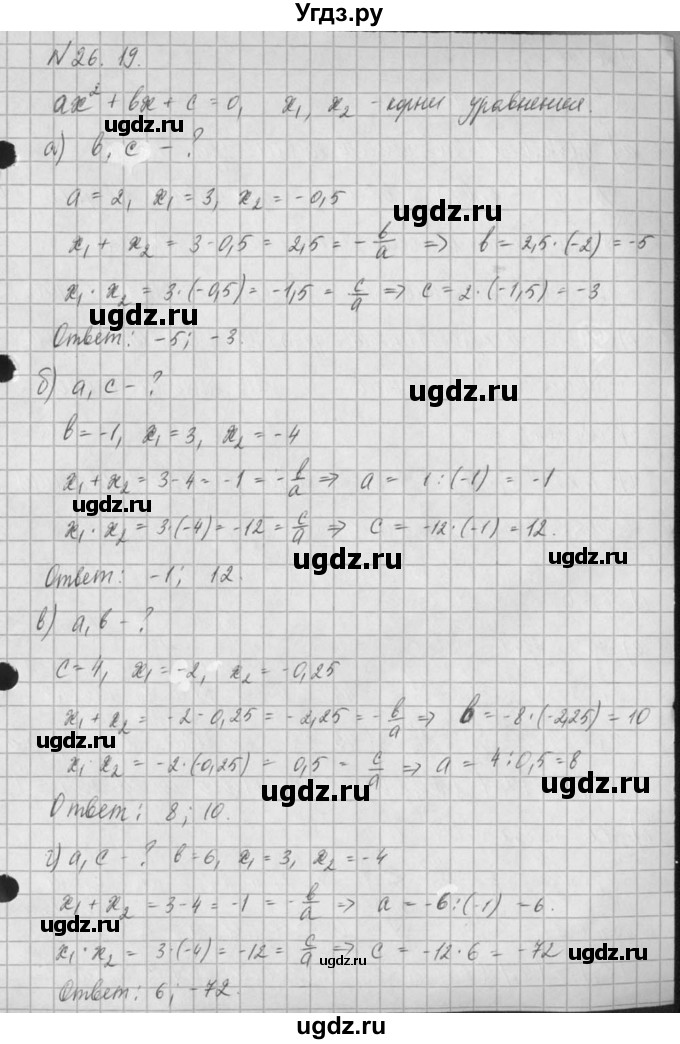 Угдз.ру
N 26. 19.
ax² + bx + c = 0, x₁, x₂ - корни уравнения.
ugdz.ru
а) b, c - ?
a = 2, x₁ = 3, x₂ = -0,5
ugdz.ru
x₁ + x₂ = 3 - 0,5 = 2,5 = - b/a ⇒ b = 2,5 · (-2) = -5
x₁ · x₂ = 3 · (-0,5) = -1,5 = c/a ⇒ c = 2 · (-1,5) = -3
ugdz.ru
Ответ: -5; -3.
б) a, c - ?
ugdz.ru
b = -1, x₁ = 3, x₂ = -4
x₁ + x₂ = 3 - 4 = -1 = - b/a ⇒ a = 1 : (-1) = -1
ugdz.ru
x₁ · x₂ = 3 · (-4) = -12 = c/a ⇒ c = -12 · (-1) = 12.
ugdz.ru
Ответ: -1; 12.
в) a, b - ?
ugdz.ru
c = 4, x₁ = -2, x₂ = -0,25
x₁ + x₂ = -2 - 0,25 = -2,25 = - b/a ⇒ b = -8 · (-2,25) = 10
ugdz.ru
x₁ · x₂ = -2 · (-0,25) = 0,5 = c/a ⇒ a = 4 : 0,5 = 8
ugdz.ru
ugdz.ru
Ответ: 8; 10.
г) a, c - ? b = 6, x₁ = 3, x₂ = -4
x₁ + x₂ = 3 - 4 = -1 = - b/a ⇒ a = -6 : (-1) = 6.
ugdz.ru
x₁ · x₂ = 3 · (-4) = -12 = c/a ⇒ c = -12 · 6 = -72
ugdz.ru
ugdz.ru
Ответ: 6; -72.
ugdz.ru